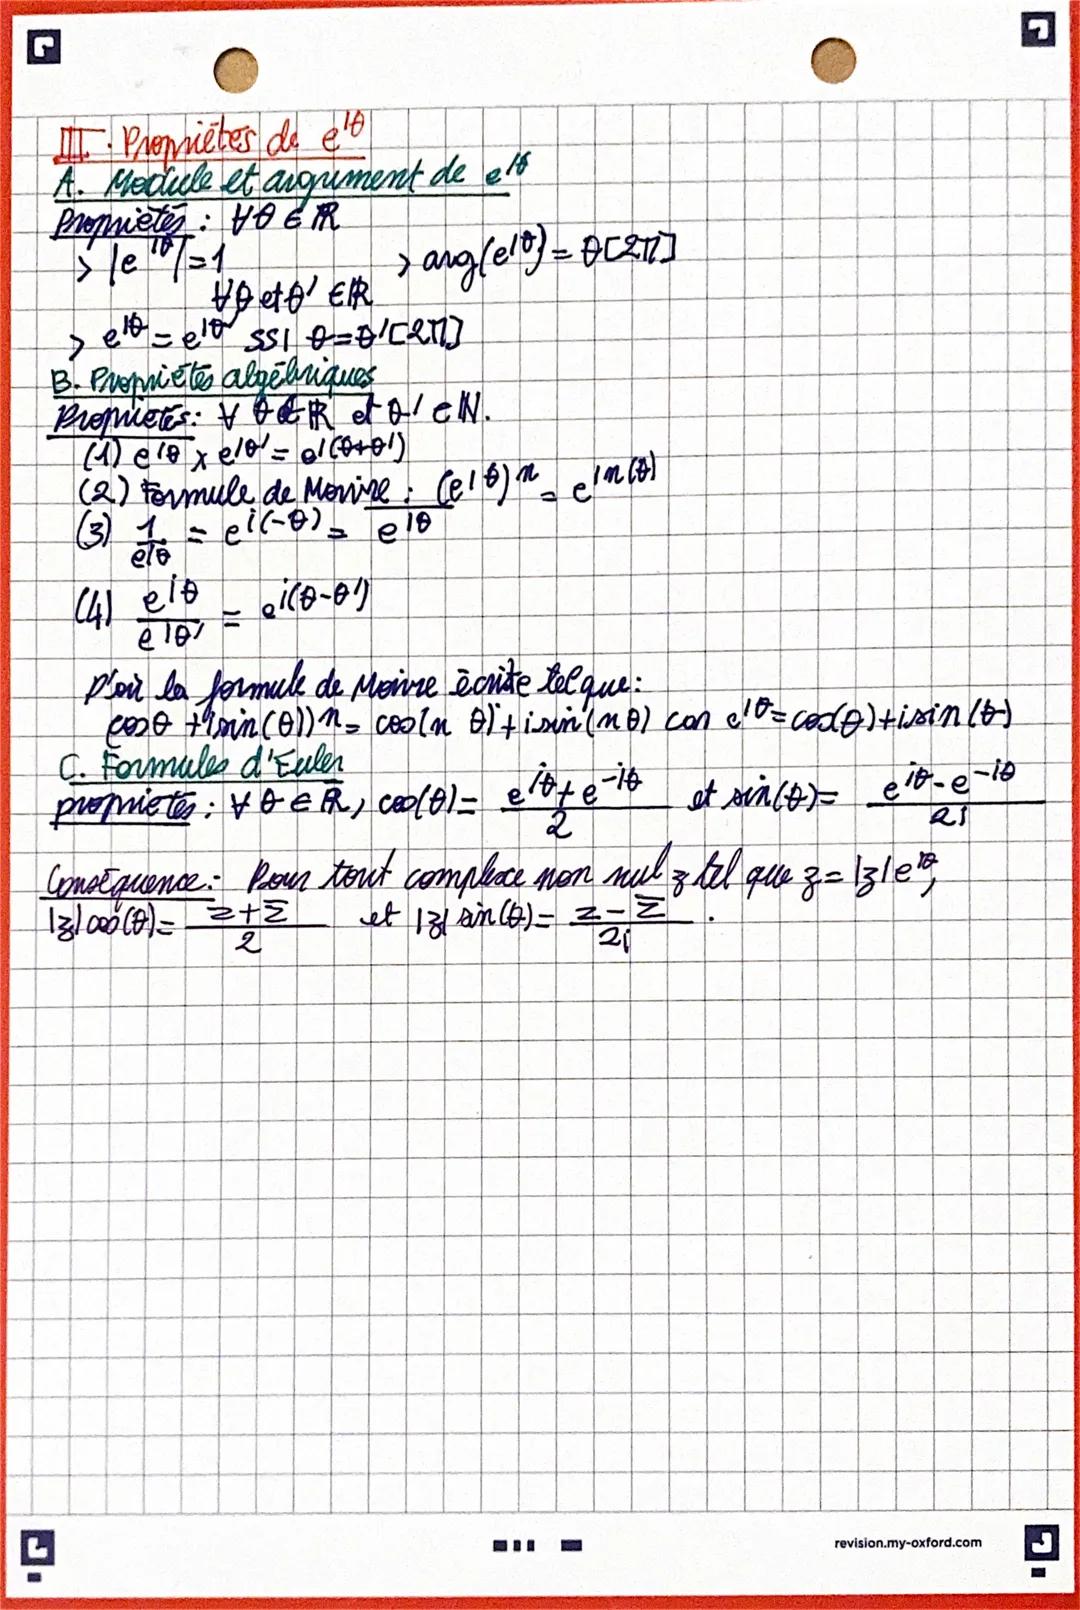 III. Propriétés de e^iθ
A. Module et argument de e^iθ
Propriétés : ∀θ ∈ ℝ
> |e^iθ| = 1 > arg(e^iθ) = θ[2π]
∀θ et θ' ∈ ℝ
> e^iθ = e^iθ' SSI θ = θ'[2π]
B. Propriétés algébriques
Propriétés : ∀ θ ∈ ℝ et θ' ∈ ℕ.
(1) e^iθ × e^iθ' = e^i(θ+θ')
(2) Formule de Moivre : (e^iθ)^n = e^in(θ)
(3) 1/e^iθ = e^i(-θ) = \overline{e^iθ}
(4) e^iθ/e^iθ' = e^i(θ-θ')
D'où la formule de Moivre écrite tel que :
cosθ + isin(θ))^n = cos(n θ) + i sin(nθ) car e^iθ = cos(θ) + i sin(θ)
C. Formules d'Euler
propriétés : ∀ θ ∈ ℝ, cos(θ) = (e^iθ + e^-iθ)/2 et sin(θ) = (e^iθ - e^-iθ)/2i
Conséquence : Pour tout complexe non nul z tel que z = |z|e^iθ,
|z|cos(θ) = (z + z̅)/2 et |z| sin(θ) = (z - z̅)/2i .
revision.my-oxford.com